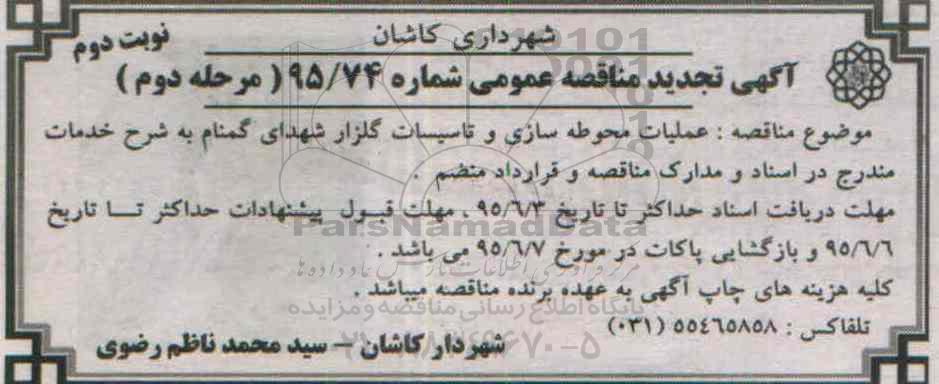 شهرداری کاشان
نوبت دوم
آگهی تجدید مناقصه عمومی شماره ۹۵/۷۴ ( مرحله دوم )
موضوع مناقصه : عملیات محوطه سازی و تاسیسات گلزار شهدای گمنام به شرح خدمات
مندرج در اسناد و مدارک مناقصه و قرارداد منضم .
مهلت دریافت اسناد حداکثر تا تاریخ ۹۵/٦/۳ ، مهلت قبول پیشنهادات حداکثر تا تاریخ
۹۵/٦/٦ و بازگشایی پاکات در مورخ ۹۵/٦/۷ می باشد .
کلیه هزینه های چاپ آگهی به عهده برنده مناقصه میباشد .
تلفاکس : ٥٥٤٦٥٨٥٨ (۰۳۱)
شهردار کاشان – سید محمد ناظم رضوی
ParsNamadData
پایگاه اطلاع رسانی مناقصه و مزایده